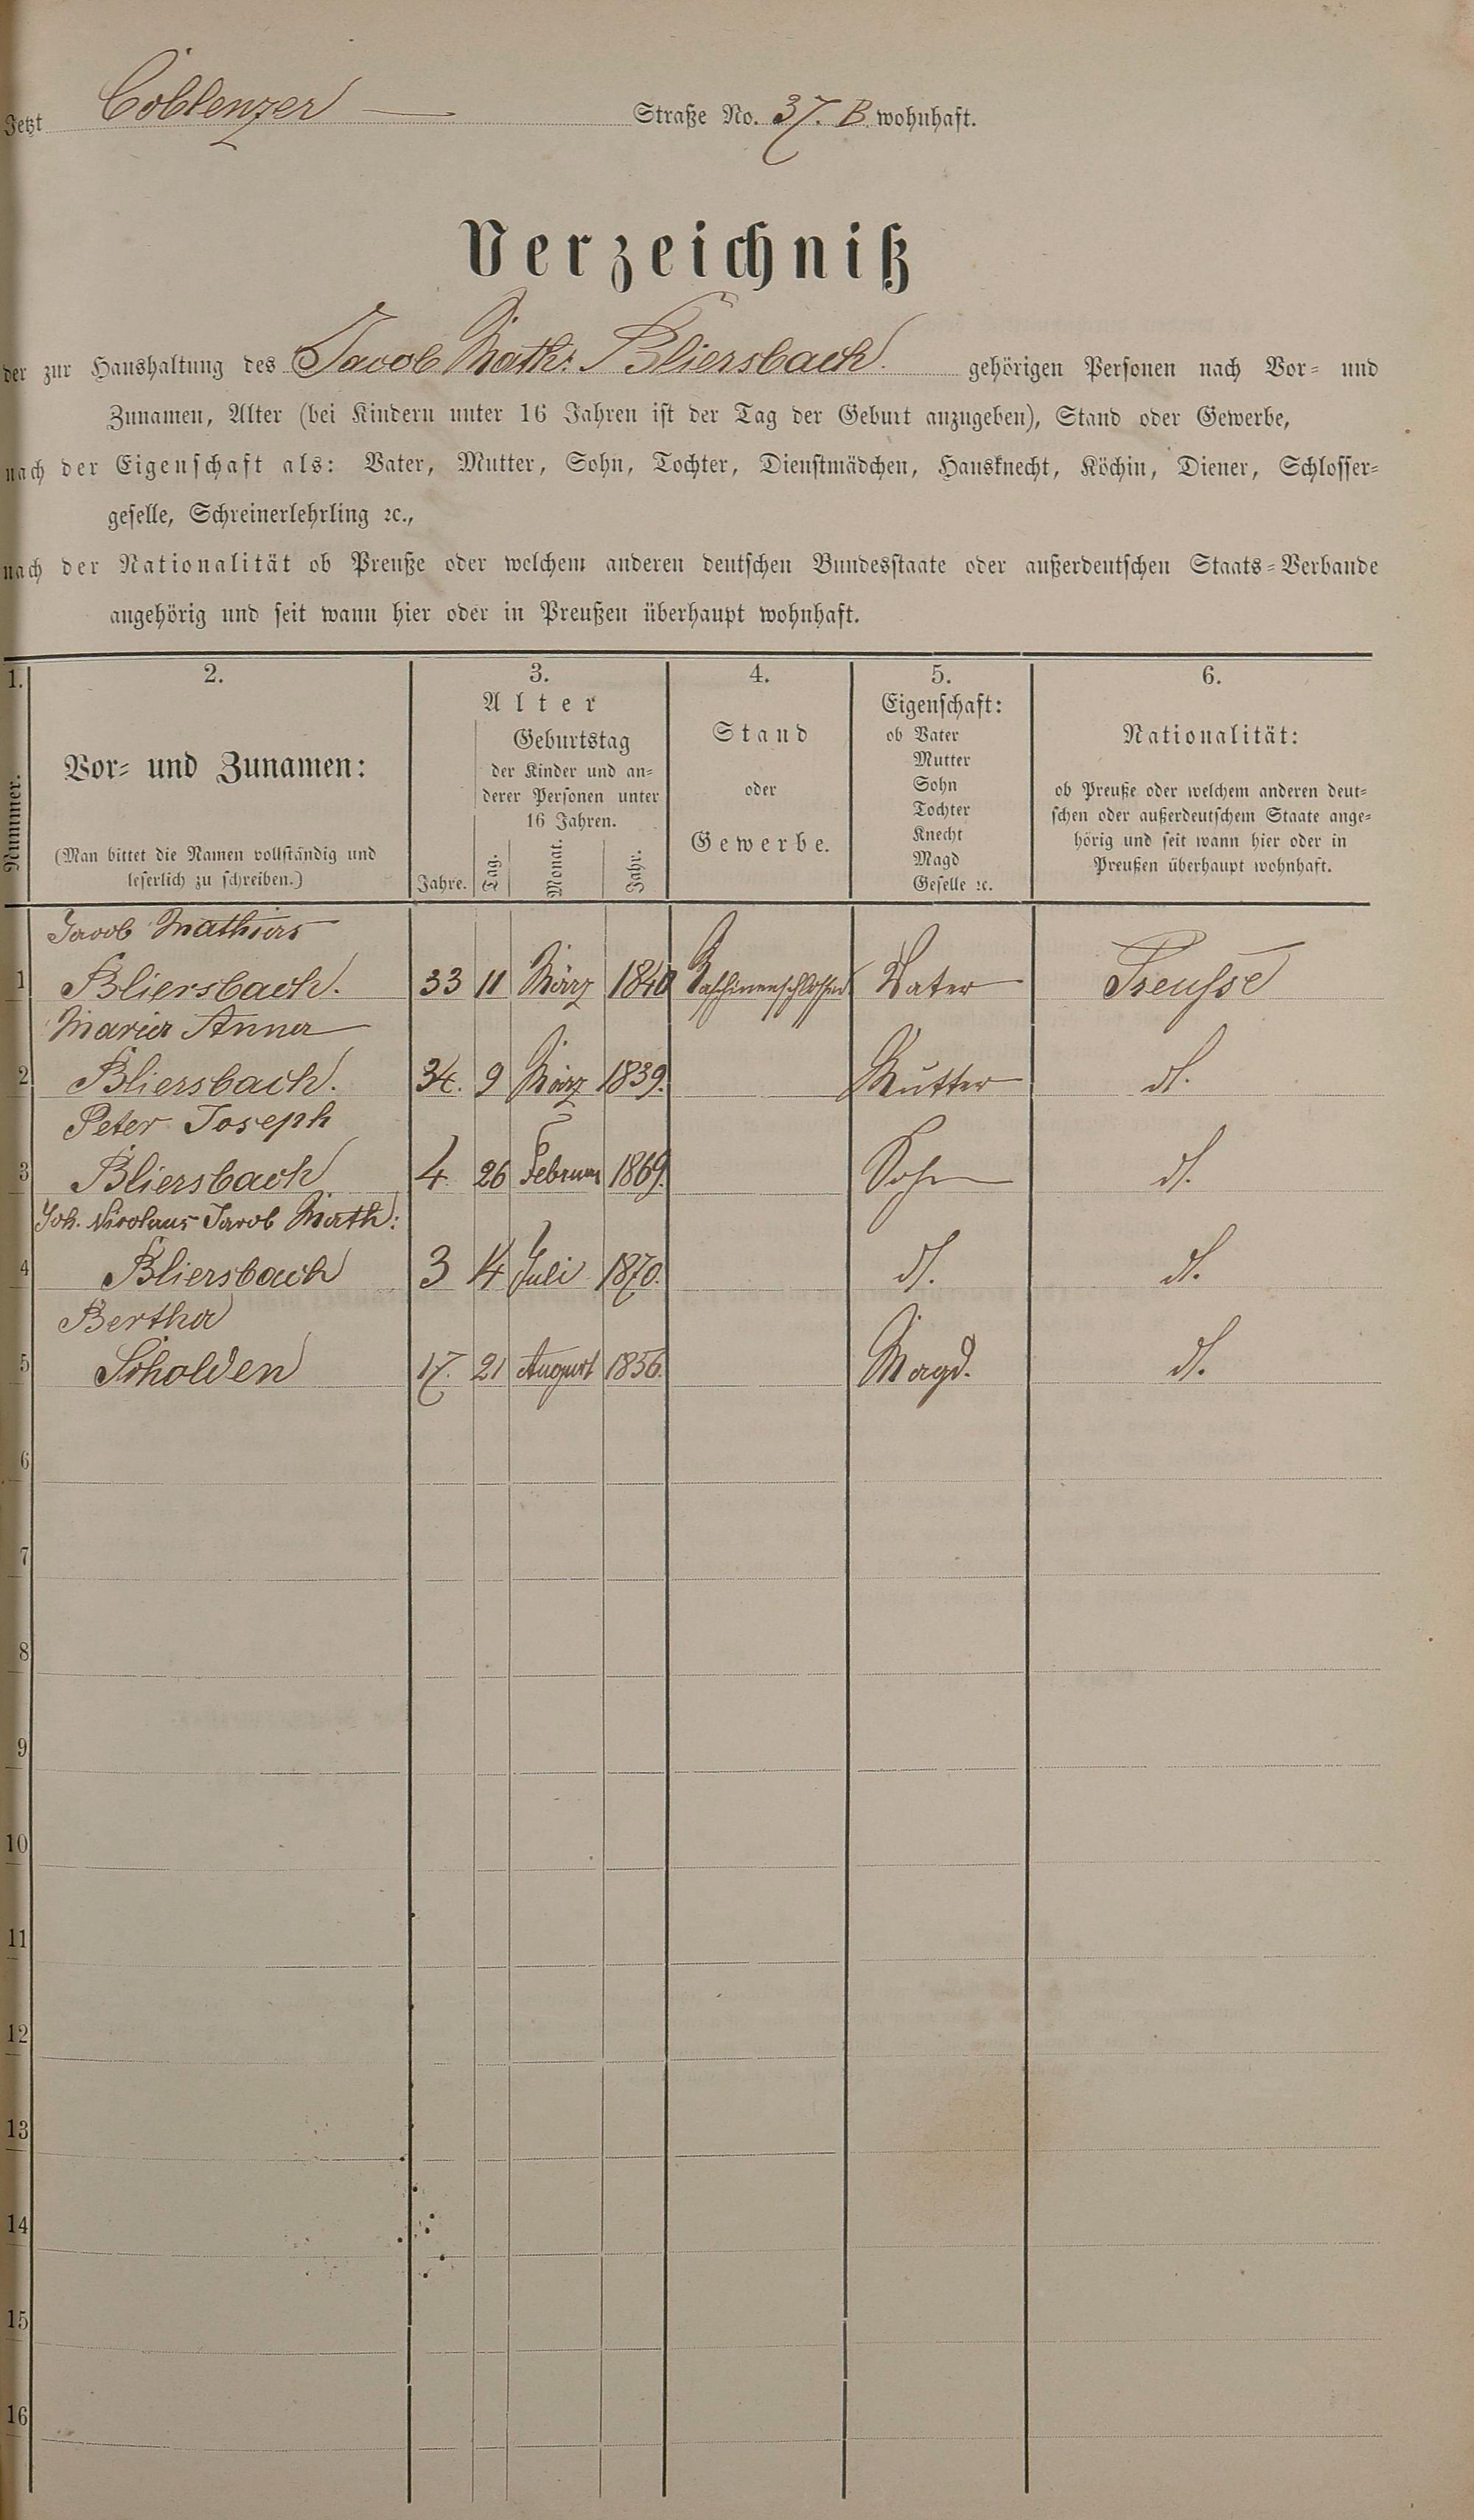 Jetzt Coblenzer — Straße No. 37. B. wohnhaft.
Verzeichniß
der zur Haushaltung des Jacob Math: Bliersbach. gehörigen Personen nach Vor- und
Zunamen, Alter (bei Kindern unter 16 Jahren ist der Tag der Geburt anzugeben), Stand oder Gewerbe,
nach der Eigenschaft als: Vater, Mutter, Sohn, Tochter, Dienstmädchen, Hausknecht, Köchin, Diener, Schlosser-
geselle, Schreinerlehrling ꝛc.,
nach der Nationalität ob Preuße oder welchem anderen deutschen Bundesstaate oder außerdeutschen Staats-Verbande
angehörig und seit wann hier oder in Preußen überhaupt wohnhaft.
1. 2. 3. 4. 5. 6.
Nummer.
Vor- und Zunamen:
(Man bittet die Namen vollständig und
leserlich zu schreiben.)
Alter
Geburtstag
der Kinder und an-
derer Personen unter
16 Jahren.
Jahre. Tag. Monat. Jahr.
Stand
oder
Gewerbe.
Eigenschaft:
ob Vater
Mutter
Sohn
Tochter
Knecht
Magd
Geselle ꝛc.
Nationalität:
ob Preuße oder welchem anderen deut-
schen oder außerdeutschem Staate ange-
hörig und seit wann hier oder in
Preußen überhaupt wohnhaft.
Jacob Mathias
1 Bliersbach. 33 11 März 1840 Maschinenschlosser Vater Preusse
Maria Anna
2 Bliersbach. 34. 9 März 1839. Mutter dt.
Peter Joseph
3 Bliersbach 4 26 Februar 1869. Sohn dt.
Joh. Nicolaus Jacob Math:
4 Bliersbach 3 14 Juli 1870. dt. dt.
Bertha
5 Scholden 17. 21 August 1856. Magd. dt.
6
7
8
9
10
11
12
13
14
15
16